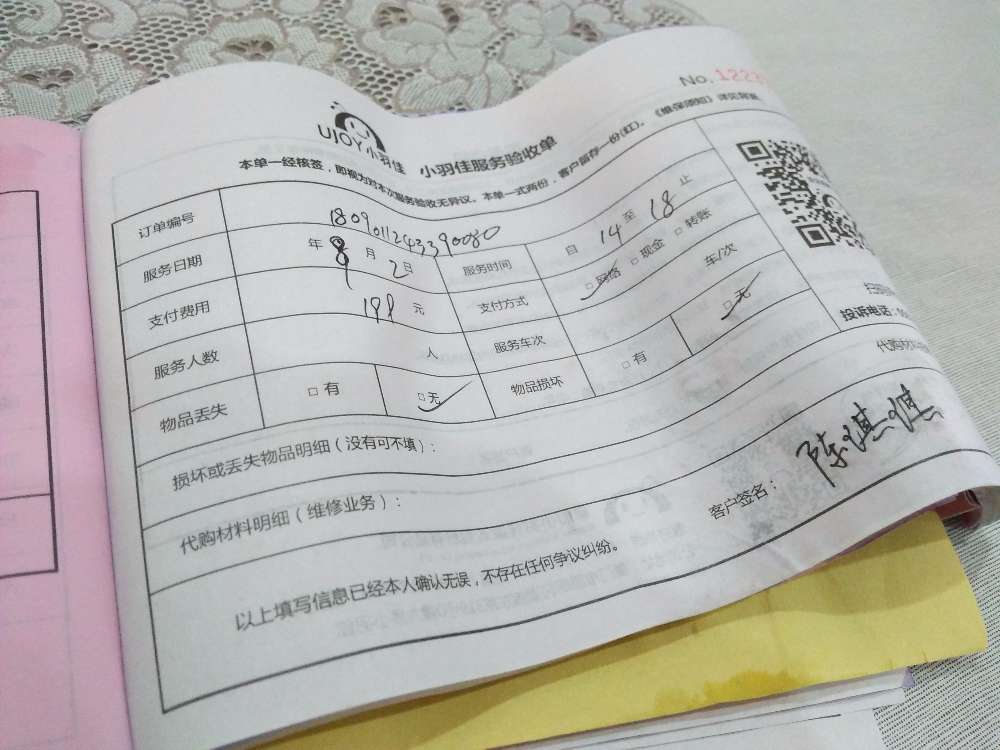 No.122
UJOY小羽佳 小羽佳服务验收单
本单一经核签，即视为对本次服务验收无异议。本单一式两份，客户留存一份(红)。《维保须知》详见背面
订单编号 1809011243390080
服务日期 年 8 月 2 日 服务时间 自 14 至 18 止
支付费用 198 元 支付方式 □网络 □现金 □转账
服务人数 人 服务车次 车/次
物品丢失 □有 □无 物品损坏 □有 □无
投诉电话：
损坏或丢失物品明细（没有可不填）：
代购材料明细（维修业务）：
代购材料
以上填写信息已经本人确认无误，不存在任何争议纠纷。 客户签名：